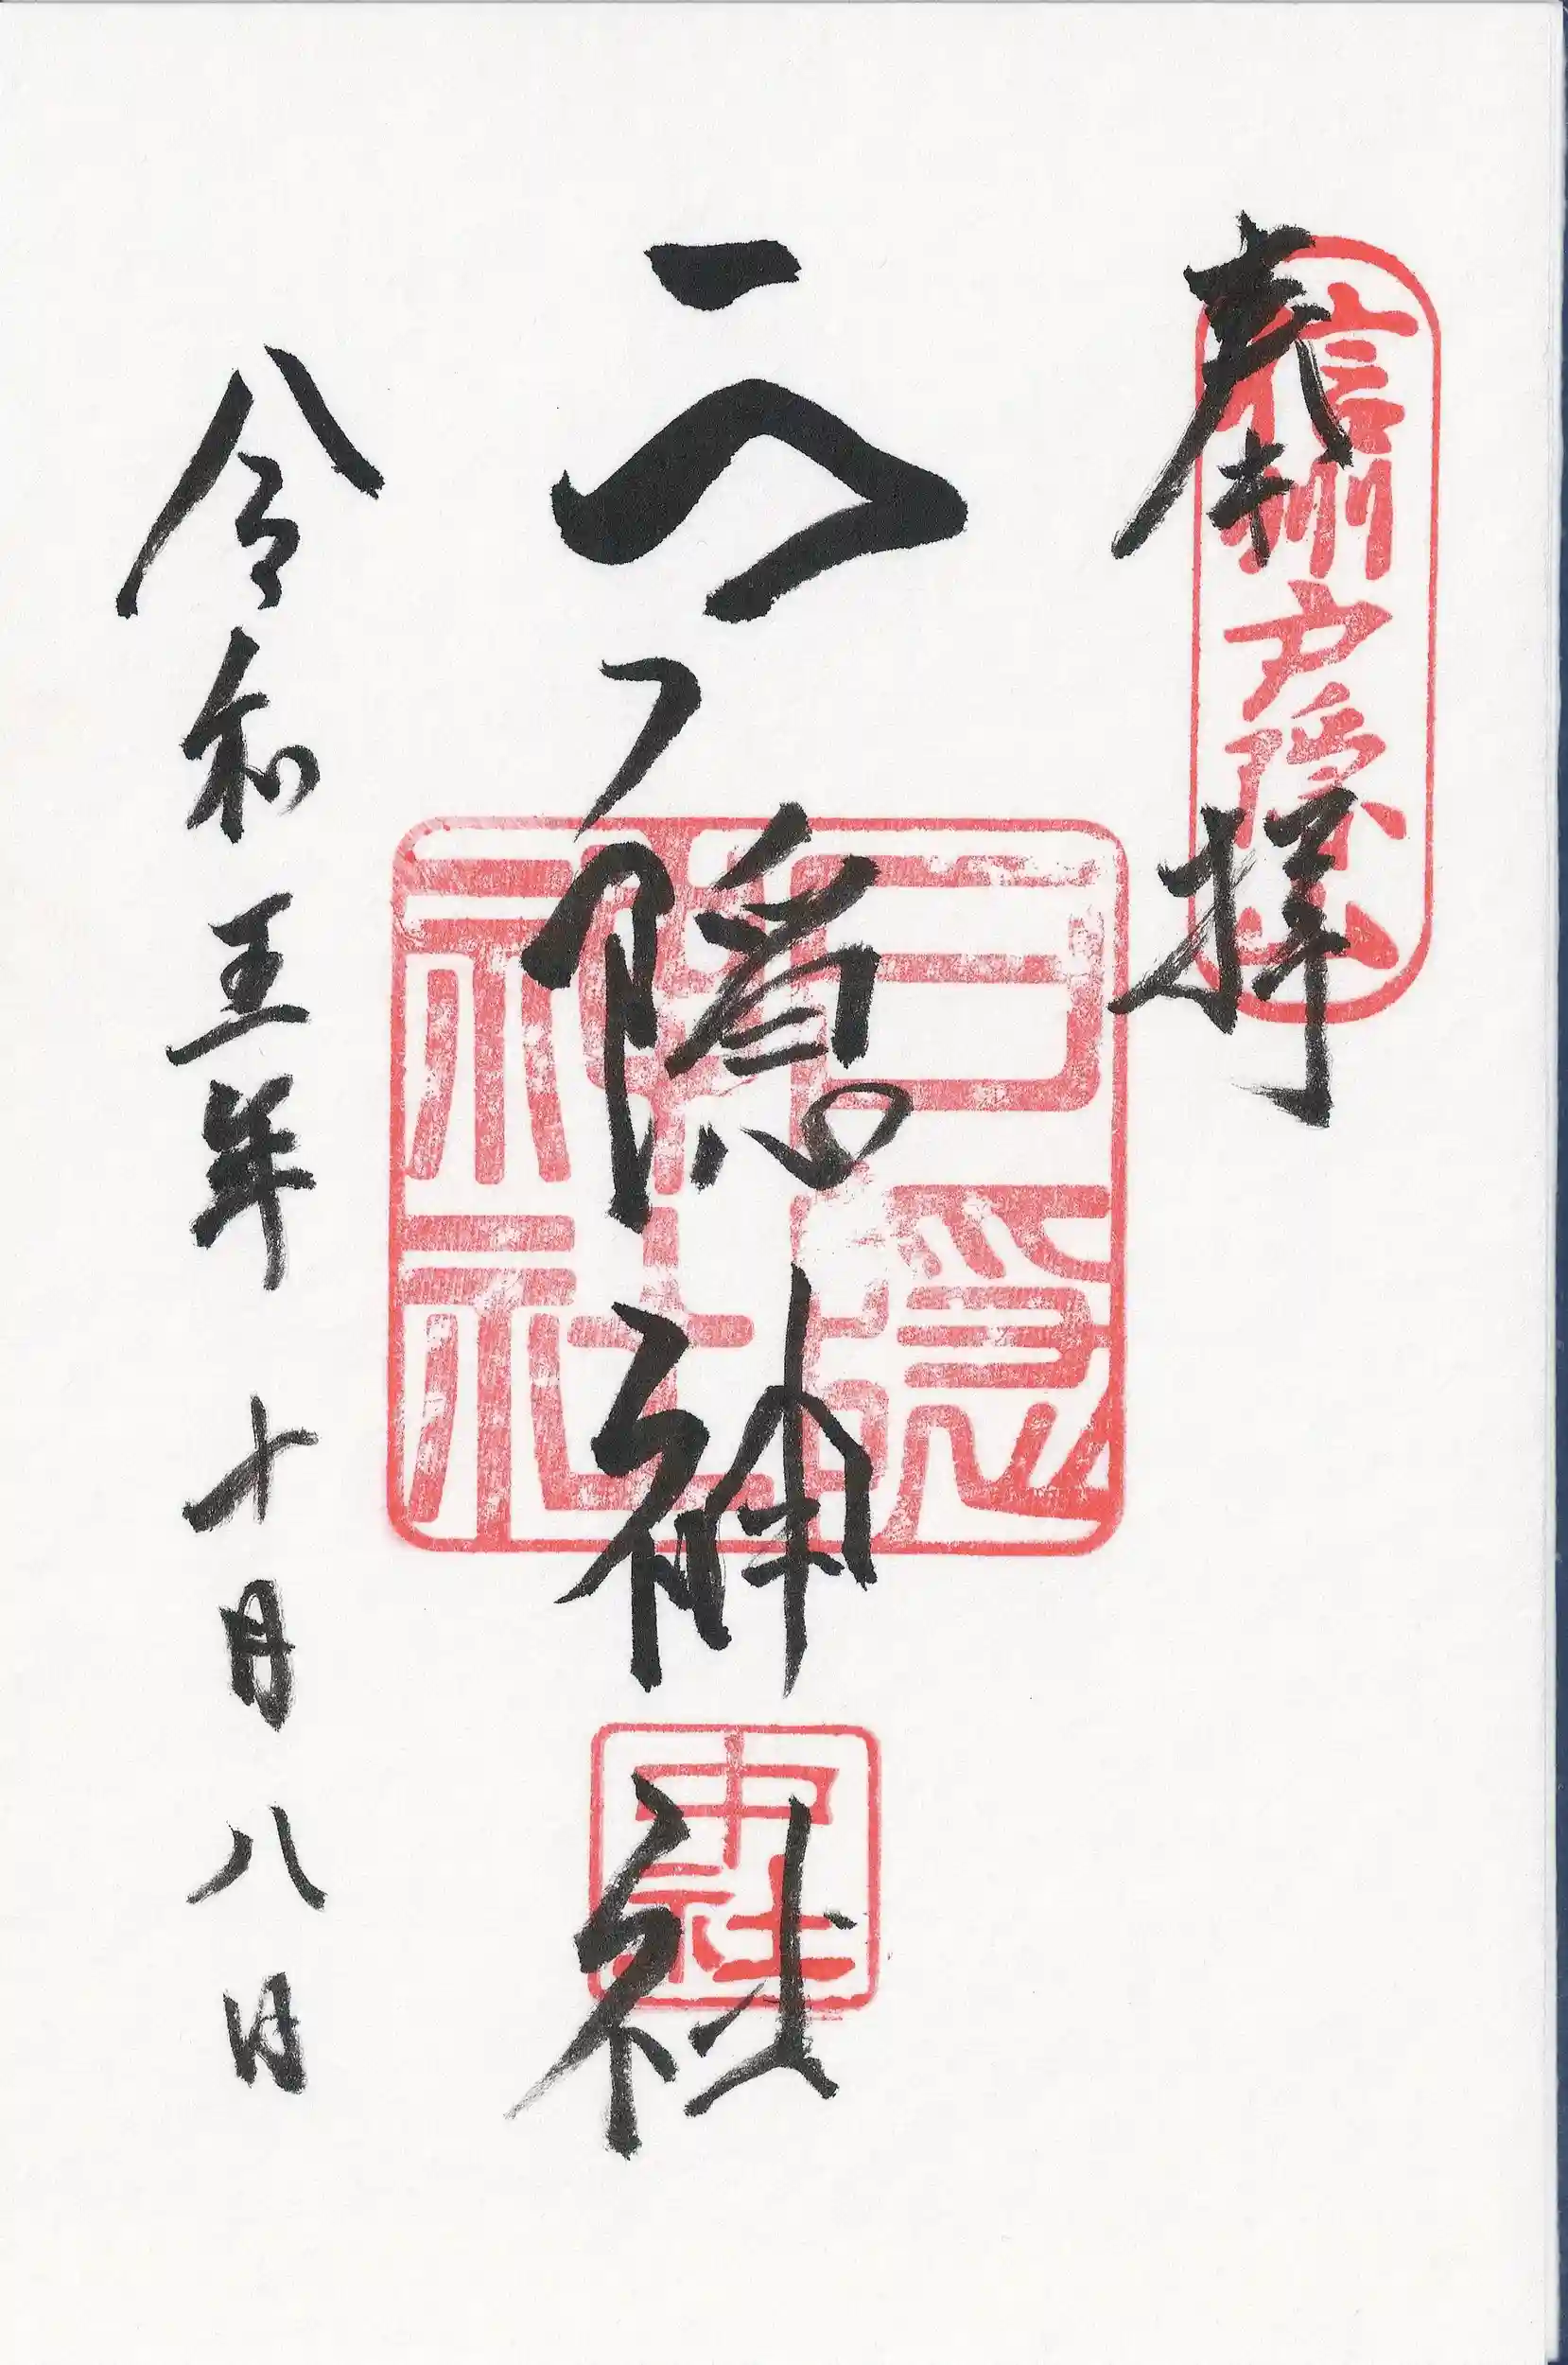 奉拝
信州戸隠山
戸隠神社
戸隠神社
中社
令和五年 十月八日